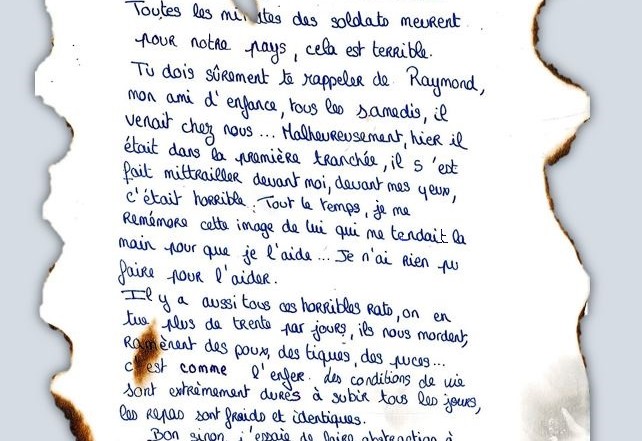 Toutes les minutes des soldats meurent
pour notre pays, cela est terrible.
Tu dois sûrement te rappeler de Raymond,
mon ami d'enfance, tous les samedis, il
venait chez nous... Malheureusement, hier il
était dans la première tranchée, il s'est
fait mittrailler devant moi, devant mes yeux,
c'était horrible. Tout le temps, je me
remémore cette image de lui qui me tendait la
main pour que je l'aide... Je n'ai rien pu
faire pour l'aider.
Il y a aussi tous ces horribles rats, on en
tue plus de trente par jours, ils nous mordent,
Ramènent des poux, des tiques, des puces...
c'est comme l'enfer. des conditions de vie
sont extrêmement dures à subir tous les jours,
les repas sont froids et identiques.
Bon sinon j'essaie de faire abstraction à